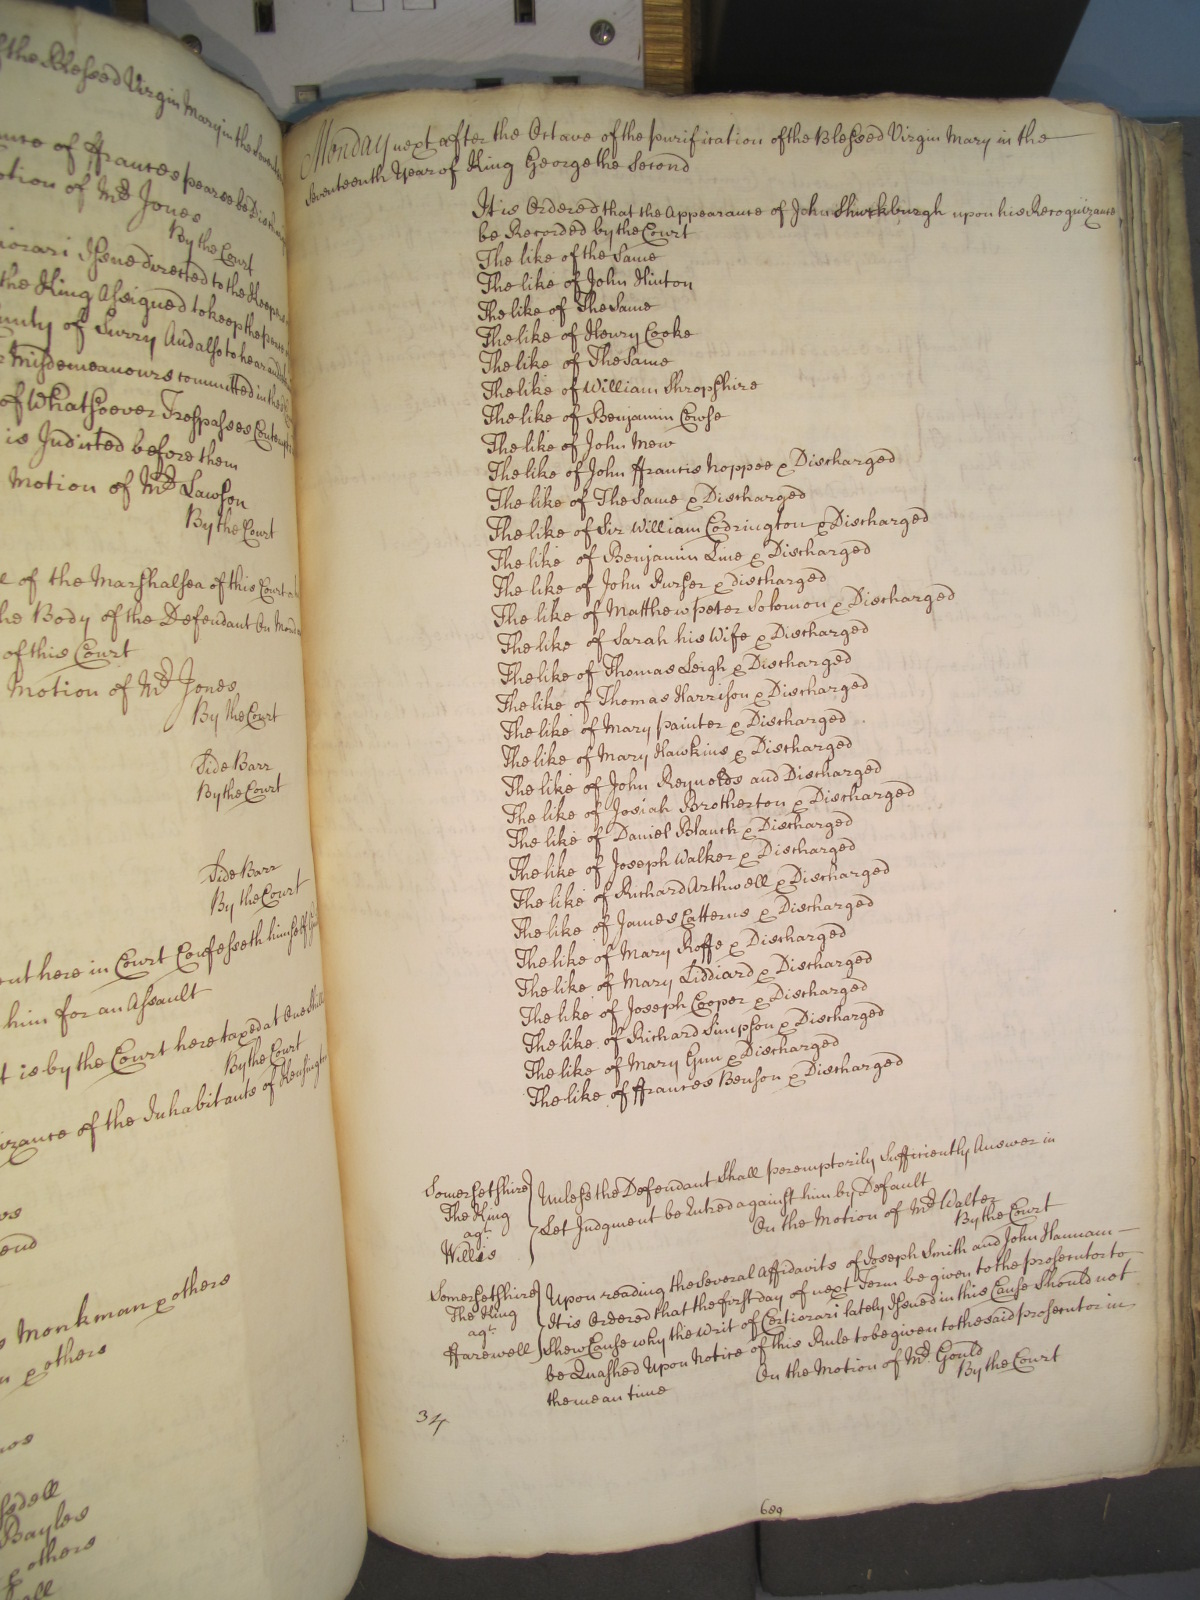 f the Blessed Virgin Mary in the
of ffrances pearse be
otion of Mr. Jones
By the Court
iorari Issue directed to the Keepers
the King Assigned to keep the peace
unty of Surry And also to hear and
Misdemeanours committed in the
of Whatsoever Trespasses Contempts
is Indicted before them
Motion of Mr. Lawson
By the Court
e of the Marshalsea of this Court
he Body of the Defendant On
of this Court
Motion of Mr. Jones
By the Court
Side Barr
By the Court
Side Barr
By the Court
ent here in Court Confesseth himself
him for an Assault
t is by the Court here taxed at One
By the Court
izance of the Inhabitants of Kensington
end
Monkman & others
n & others
Bayles
& others
Monday next after the Octave of the purification of the Blessed Virgin Mary in the
Seventeenth Year of King George the Second
It is Ordered that the Appearance of John Shuckburgh upon his Recognizance
be Recorded by the Court
The like of the Same
The like of John Hinton
The like of The Same
The like of Henry Cooke
The like of The Same
The like of William Shropshire
The like of Benjamin Cowse
The like of John Mew
The like of John ffrancis Noppee & Discharged
The like of The Same & Discharged
The like of Sir William Codrington & Discharged
The like of Benjamin Line & Discharged
The like of John Purser & discharged
The like of Matthew peter Solomon & Discharged
The like of Sarah his Wife & Discharged
The like of Thomas Leigh & Discharged
The like of Thomas Harrison & Discharged
The like of Mary painter & Discharged
The like of Mary Hawkins & Discharged
The like of John Reynolds and Discharged
The like of Josiah Brotherton & Discharged
The like of Daniel Blanch & Discharged
The like of Joseph Walker & Discharged
The like of Richard Arthwell & Discharged
The like of James Catterns & Discharged
The like of Mary Roffe & Discharged
The like of Mary Liddiard & Discharged
The like of Joseph Cooper & Discharged
The like of Richard Simpson & Discharged
The like of Mary Gun & Discharged
The like of ffrances Benson & Discharged
Somersetshire
The King
agt.
Willis
Unless the Defendant Shall peremptorily Sufficiently Answer in
Let Judgment be Entred against him by Default
On the Motion of Mr. Walter
By the Court
Somersetshire
The King
agt.
ffarewell
Upon reading the Several Affidavits of Joseph Smith and John Hannam
It is Ordered that the first day of next Term be given to the prosecutor to
Shew Cause why the Writ of Certiorari lately Issued in this Cause Should not
be Quashed Upon Notice of this Rule to be given to the said prosecutor in
the mean time
On the Motion of Mr. Gould
By the Court
34
689